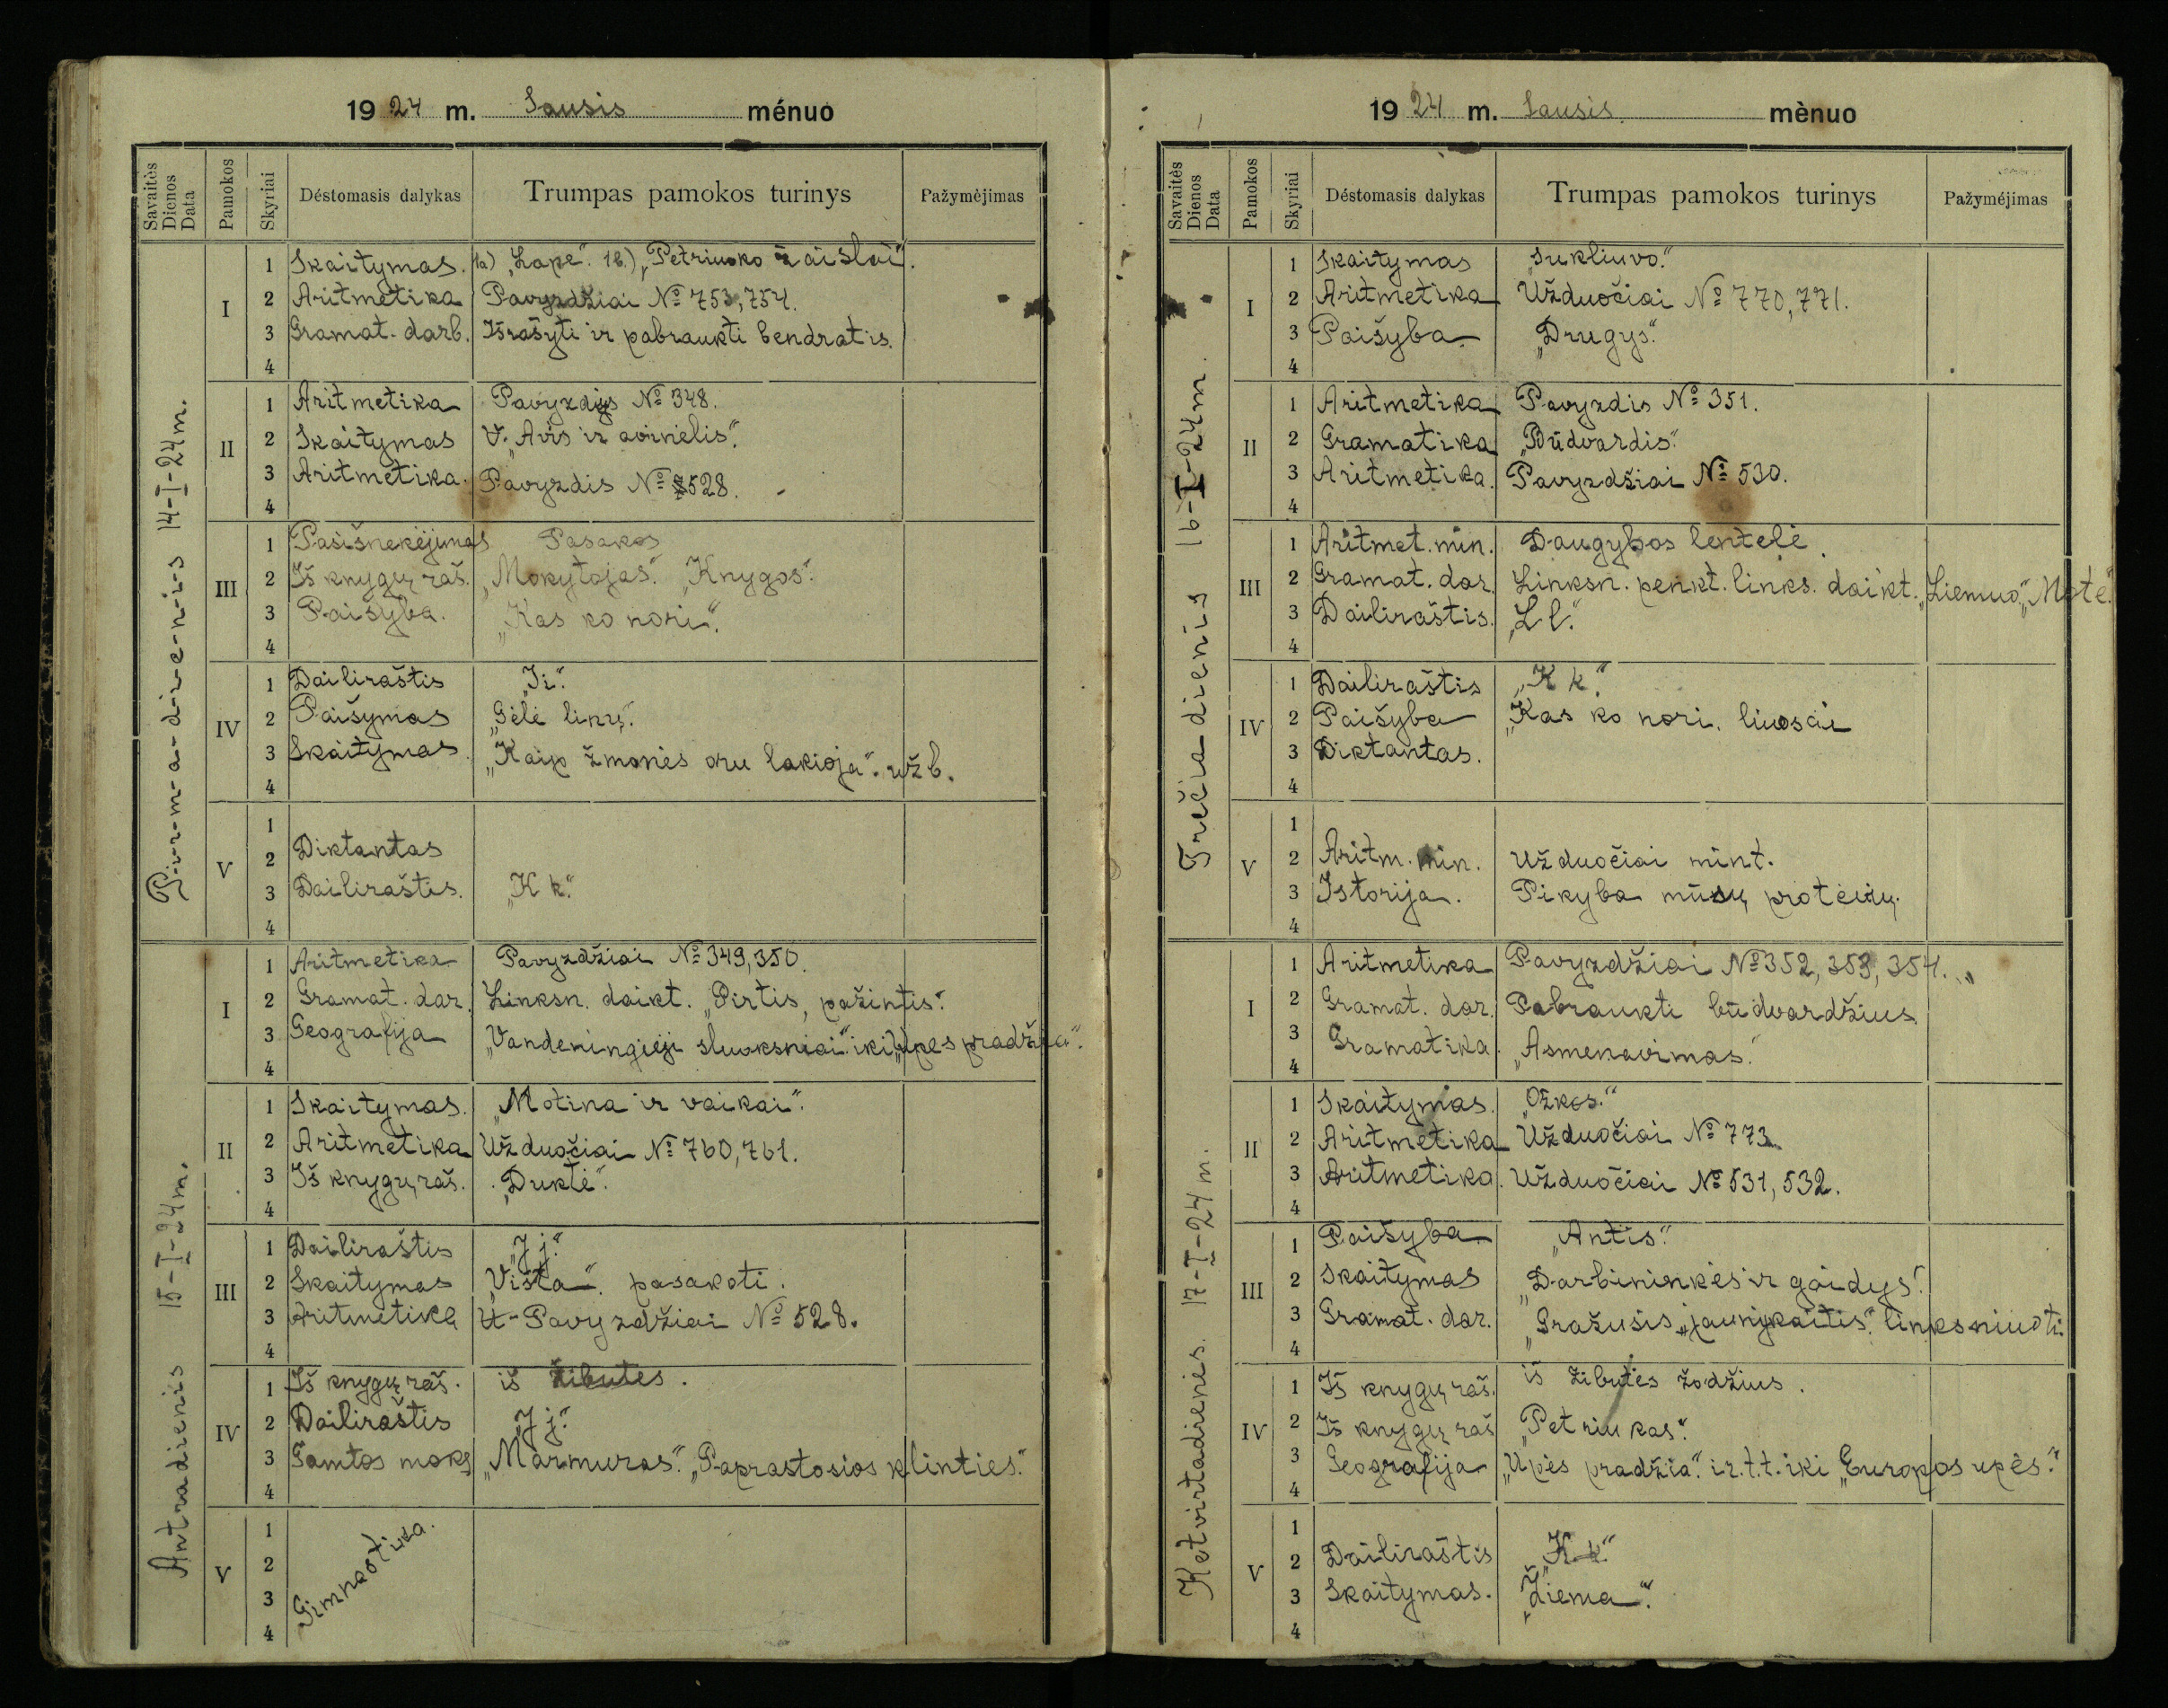 1924 m. Sausis ménuo
Savaitès Dienos Data Pamokos Skyriai Déstomasis dalykas Trumpas pamokos turinys Pažymèjimas
Pir-m-a-di-e-n-i-s 14-I-24m.
I
1 Skaitymas. 1a) „Lapė“. 1b.) „Petriuko žaislai“.
2 Aritmetika Pavyzdžiai № 753, 754.
3 Gramat. darb. Išrašyti ir pabraukti bendratis.
4
II
1 Aritmetika Pavyzdys № 348.
2 Skaitymas V. „Avis ir avinėlis“.
3 Aritmetika. Pavyzdis № 528.
4
III
1 Pasišnekėjimas Pasakos
2 Iš knygų raš. „Mokytojas“. „Knygos“.
3 Paišyba. „Kas ko nori“.
4
IV
1 Dailiraštis „Ii“.
2 Paišymas „Gėlė linų“.
3 Skaitymas „Kaip žmonės oru lakioja“. užb.
4
V
1
2 Diktantas
3 Dailiraštis. „K k“.
4
Antradienis 15-I-24m.
I
1 Aritmetika Pavyzdžiai № 349, 350.
2 Gramat. dar. Linksn. daikt. „Pirtis, pažintis“.
3 Geografija „Vandeningieji sluoksniai“. iki „Upės pradžia“.
4
II
1 Skaitymas. „Motina ir vaikai“.
2 Aritmetika Užduočiai № 760, 761.
3 Iš knygų raš. „Duktė“.
4
III
1 Dailiraštis „J j“.
2 Skaitymas „Višta“. pasakoti.
3 Aritmetika U-Pavyzdžiai № 528.
4
IV
1 Iš knygų raš. iš žibutės.
2 Dailiraštis „J j“.
3 Gamtos moks „Marmuras“. „Paprastosios klinties“.
4
V
1
2
3
4
Gimnastika.
1924 m. Sausis. mènuo
Savaitès Dienos Data Pamokos Skyriai Déstomasis dalykas Trumpas pamokos turinys Pažyméjimas
Trečiadienis 16-I-24m.
I
1 Skaitymas „Sukliuvo“.
2 Aritmetika Užduočiai № 770, 771.
3 Paišyba „Drugys“.
4
II
1 Aritmetika Pavyzdis № 351.
2 Gramatika „Būdvardis“.
3 Aritmetika. Pavyzdžiai № 530.
4
III
1 Aritmet. min. Daugybos lentelė.
2 Gramat. dar. Linksn. penkt. links. daikt. „Liemuo“, „Motė“.
3 Dailiraštis. „L l“.
4
IV
1 Dailiraštis „K k“.
2 Paišyba „Kas ko nori. liuosai
3 Diktantas.
4
V
1
2 Aritm. min. Užduočiai mint.
3 Istorija. Pikyba mūsų protėvių.
4
Ketvirtadienis. 17-I-24m.
I
1 Aritmetika Pavyzdžiai № 352, 353, 354.
2 Gramat. dar. Pabraukti būdvardžius
3 Gramatika. „Asmenavimas“.
4
II
1 Skaitymas. „Ožkos“.
2 Aritmetika Užduočiai № 773
3 Aritmetika. Užduočiai № 531, 532.
4
III
1 Paišyba „Antis“.
2 Skaitymas „Darbininkės ir gaidys“.
3 Gramat. dar. „Gražusis „jaunykaitis“. linksniuoti.
4
IV
1 Iš knygų raš. iš žibutės žodžius.
2 Iš knygų raš „Petriukas“.
3 Geografija „Upės pradžia“. ir.t.t. iki „Europos upės“.
4
V
1
2 Dailiraštis „K k“
3 Skaitymas. „Žiema“.
4